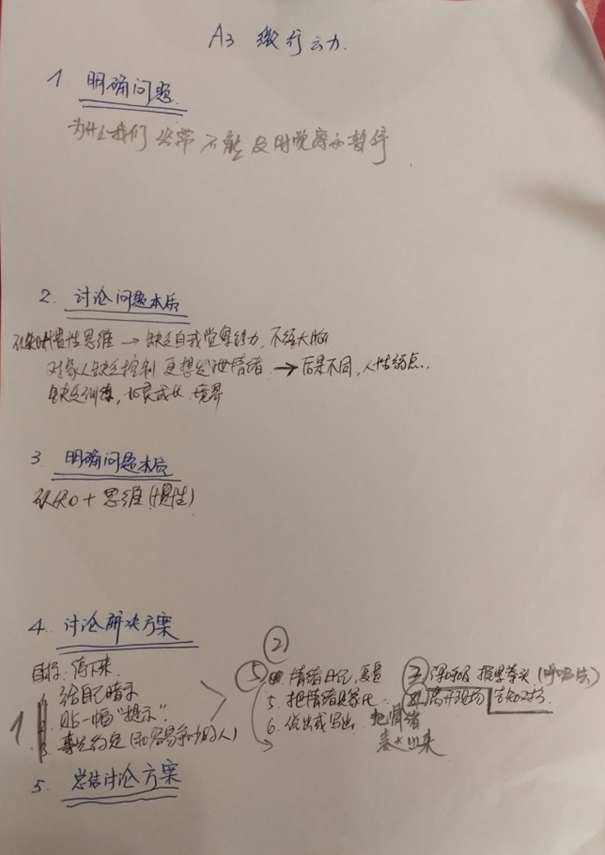 A3 微行动力.
1 明确问题
为什么我们经常不能及时觉察和暂停
2. 讨论问题本后
惯性思维 → 缺乏自我觉察能力, 不经大脑
对象人缺乏控制 更想发泄情绪 → 后果不同, 人性弱点..
缺乏训练, 成长 境界
3. 明确问题本后
认知 + 思维 (惯性)
4. 讨论解决方案
目标: 停下来
②
1
给自己暗示
贴一幅“提示”.
事先约定 (和容易争吵的人)
③ 情绪日记,
5. 把情绪具象化
6. 说出或写出 把情绪
表达出来
深呼吸 (呼吸法)
离开现场
5. 总结讨论方案